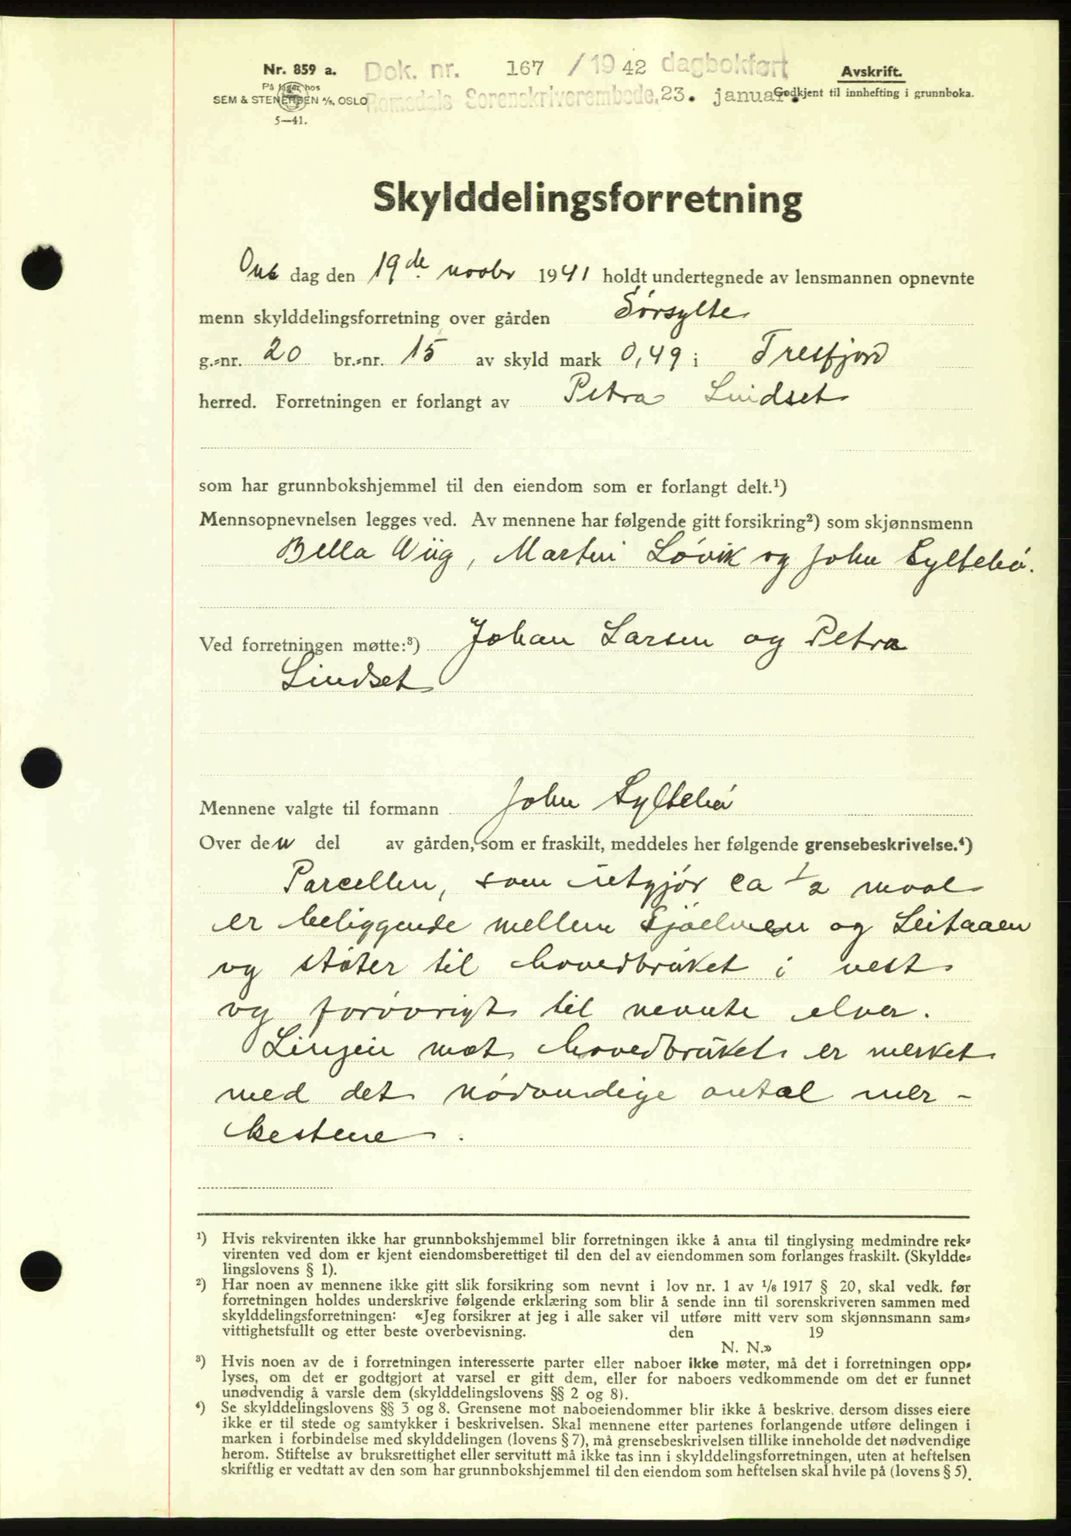 Nr. 859 a.
På lager hos
SEM & STENERSEN A/S, OSLO
5—41.
Dok. nr. 167 / 1942 dagbokført
Romsdals Sorenskriverembede, 23. januar.
Avskrift.
Godkjent til innhefting i grunnboka.
Skylddelingsforretning
Ons dag den 19de novbr 1941 holdt undertegnede av lensmannen opnevnte
menn skylddelingsforretning over gården Sørsylte
g.-nr. 20 br.-nr. 15 av skyld mark 0,49 i Tresfjord
herred. Forretningen er forlangt av Petra Lindset
som har grunnbokshjemmel til den eiendom som er forlangt delt.¹)
Mennsopnevnelsen legges ved. Av mennene har følgende gitt forsikring²) som skjønnsmenn
Bella Wiig, Martin Løvik og John Syltebö.
Ved forretningen møtte:³) Johan Larsen og Petra
Lindset
Mennene valgte til formann John Syltebö
Over den del av gården, som er fraskilt, meddeles her følgende grensebeskrivelse.⁴)
Parcellen, som utgjør ca ½ maal
er beliggende mellem Sjöelven og Leitaaen
og støter til hovedbruket i vest
og forøvrigt til nevnte elver.
Linjen mot hovedbruket er merket
med det nödvendige antal mer-
kestene.
¹) Hvis rekvirenten ikke har grunnbokshjemmel blir forretningen ikke å anta til tinglysing medmindre rek-
virenten ved dom er kjent eiendomsberettiget til den del av eiendommen som forlanges fraskilt. (Skyldde-
lingslovens § 1).
²) Har noen av mennene ikke gitt slik forsikring som nevnt i lov nr. 1 av 1/6 1917 § 20, skal vedk. før
forretningen holdes underskrive følgende erklæring som blir å sende inn til sorenskriveren sammen med
skylddelingsforretningen: «Jeg forsikrer at jeg i alle saker vil utføre mitt verv som skjønnsmann sam-
vittighetsfullt og etter beste overbevisning. den 19
N. N.»
³) Hvis noen av de i forretningen interesserte parter eller naboer ikke møter, må det i forretningen opp-
lyses, om det er godtgjort at varsel er gitt dem, eller for naboers vedkommende om det er funnet
unødvendig å varsle dem (skylddelingslovens §§ 2 og 8).
⁴) Se skylddelingslovens §§ 3 og 8. Grensene mot naboeiendommer blir ikke å beskrive, dersom disses eiere
ikke er til stede og samtykker i beskrivelsen. Skal mennene etter partenes forlangende utføre delingen i
marken i forbindelse med skylddelingen (lovens § 7), må grensebeskrivelsen tillike inneholde det nødvendige
herom. Stiftelse av bruksrettighet eller servitutt må ikke tas inn i skylddelingsforretningen, uten at heftelsen
skriftlig er vedtatt av den som har grunnbokshjemmel til den eiendom som heftelsen skal hvile på (lovens § 5).